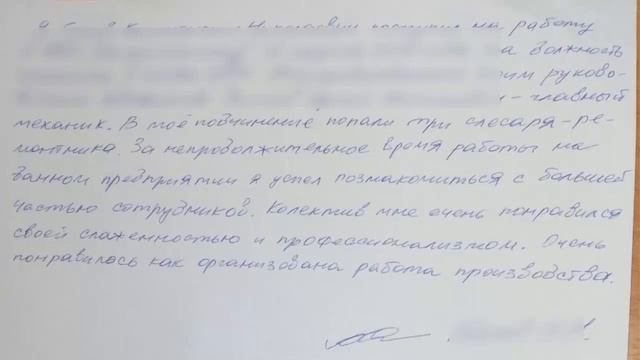 на работу
а должность
им руково-
- главный
механик. В моё подчинение попали три слесаря-ре-
монтника. За непродолжительное время работы на
данном предприятии я успел познакомиться с большей
частью сотрудников. Колектив мне очень понравился
своей слаженностью и профессионализмом. Очень
понравилось как организована работа производства.